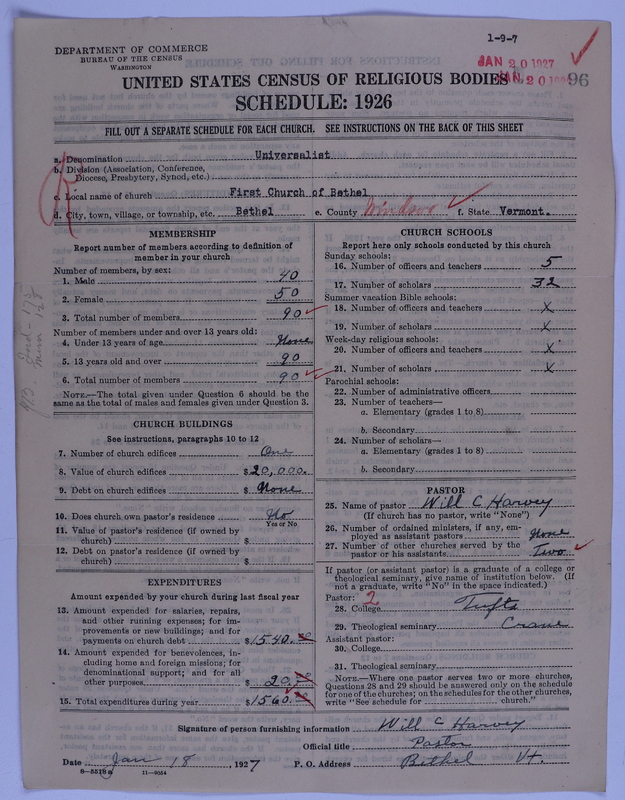 1-9-7
DEPARTMENT OF COMMERCE
BUREAU OF THE CENSUS
WASHINGTON
JAN 20 1927
JAN 20 96
UNITED STATES CENSUS OF RELIGIOUS BODIES
SCHEDULE: 1926
FILL OUT A SEPARATE SCHEDULE FOR EACH CHURCH. SEE INSTRUCTIONS ON THE BACK OF THIS SHEET
a. Denomination Universalist
b. Division (Association, Conference, Diocese, Presbytery, Synod, etc.)
c. Local name of church First Church of Bethel
d. City, town, village, or township, etc. Bethel e. County Windsor f. State Vermont.
MEMBERSHIP
Report number of members according to definition of member in your church
Number of members, by sex:
1. Male 40
2. Female 50
3. Total number of members 90
Number of members under and over 13 years old:
4. Under 13 years of age None
5. 13 years old and over 90
6. Total number of members 90
NOTE.—The total given under Question 6 should be the same as the total of males and females given under Question 3.
CHURCH BUILDINGS
See instructions, paragraphs 10 to 12
7. Number of church edifices One
8. Value of church edifices $20,000.
9. Debt on church edifices $ None
10. Does church own pastor's residence No
Yes or No
11. Value of pastor's residence (if owned by church) $
12. Debt on pastor's residence (if owned by church) $
EXPENDITURES
Amount expended by your church during last fiscal year
13. Amount expended for salaries, repairs, and other running expenses; for improvements or new buildings; and for payments on church debt $1540.
14. Amount expended for benevolences, including home and foreign missions; for denominational support; and for all other purposes $ 20.
15. Total expenditures during year $1560.
CHURCH SCHOOLS
Report here only schools conducted by this church
Sunday schools:
16. Number of officers and teachers 5
17. Number of scholars 32
Summer vacation Bible schools:
18. Number of officers and teachers X
19. Number of scholars X
Week-day religious schools:
20. Number of officers and teachers X
21. Number of scholars X
Parochial schools:
22. Number of administrative officers
23. Number of teachers—
a. Elementary (grades 1 to 8)
b. Secondary
24. Number of scholars—
a. Elementary (grades 1 to 8)
b. Secondary
PASTOR
25. Name of pastor Will C Harvey
(If church has no pastor, write "None")
26. Number of ordained ministers, if any, employed as assistant pastors None
27. Number of other churches served by the pastor or his assistants Two
If pastor (or assistant pastor) is a graduate of a college or theological seminary, give name of institution below. (If not a graduate, write "No" in the space indicated.)
Pastor: 2
28. College Tufts
29. Theological seminary Crane
Assistant pastor:
30. College
31. Theological seminary
NOTE.—Where one pastor serves two or more churches, Questions 28 and 29 should be answered only on the schedule for one of the churches; on the schedules for the other churches, write "See schedule for church."
Signature of person furnishing information Will C Harvey
Official title Pastor
Date Jan 18, 1927 P. O. Address Bethel Vt.
8-5518a 11-9054